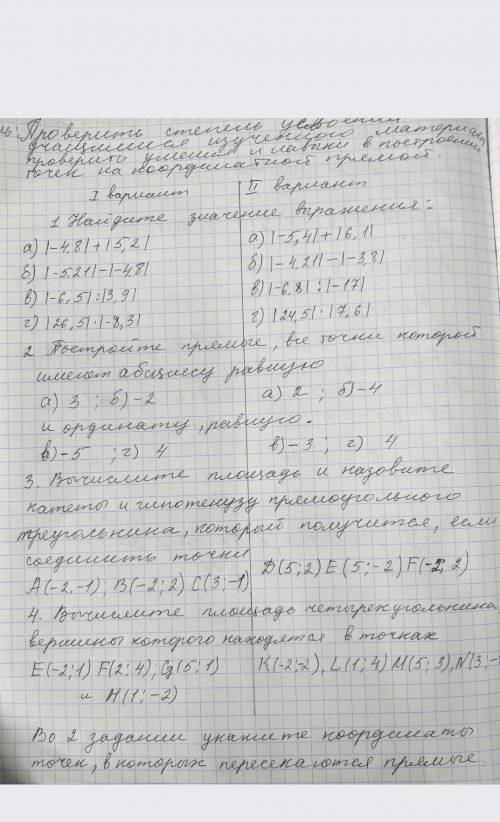 Проверить степень усвоения
учащимися изученного материала
проверить умения и навыки в построении
точек на координатной прямой.
I вариант
II вариант
1 Найдите значение выражения:
а) |-4,8|+|5,2|
б) |-5,21|-|-4,8|
в) |-6,5|:|3,9|
г) |26,5|·|-8,3|
а) |-5,4|+|6,1|
б) |-4,21|-|-3,8|
в) |-6,8|:|-17|
г) |24,5|·|7,6|
2 Постройте прямые, все точки которой
имеют абциссу равную
а) 3 ; б) -2
а) 2 ; б) -4
и ординату, равную.
в) -5 ; г) 4
в) -3 ; г) 4
3. Вычислите площадь и назовите
катеты и гипотенузу прямоугольного
треугольника, который получится, если
соединить точки
A(-2,-1); B(-2;2) C(3;-1)
D(5;2) E(5;-2) F(-2;2)
4. Вычислите площадь четырехугольника
вершины которого находятся в точках
E(-2;1) F(2;4); G(5;1)
и H(1;-2)
K(-2;-2), L(1;4) M(5;3), N(3;-
Во 2 задании укажите координаты
точек, в которых пересекаются прямые.